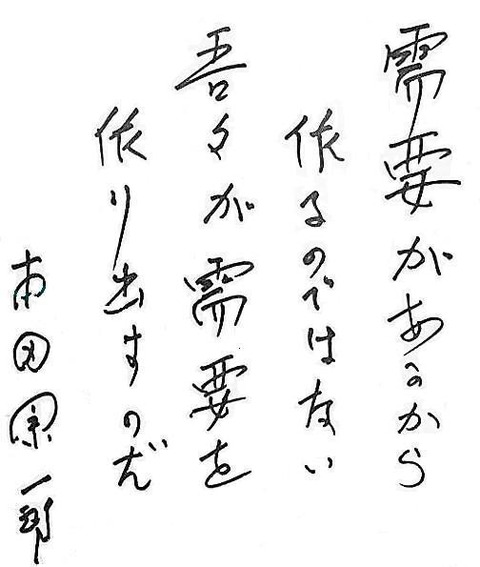 需要があるから
作るのではない
吾々が需要を
作り出すのだ
本田宗一郎